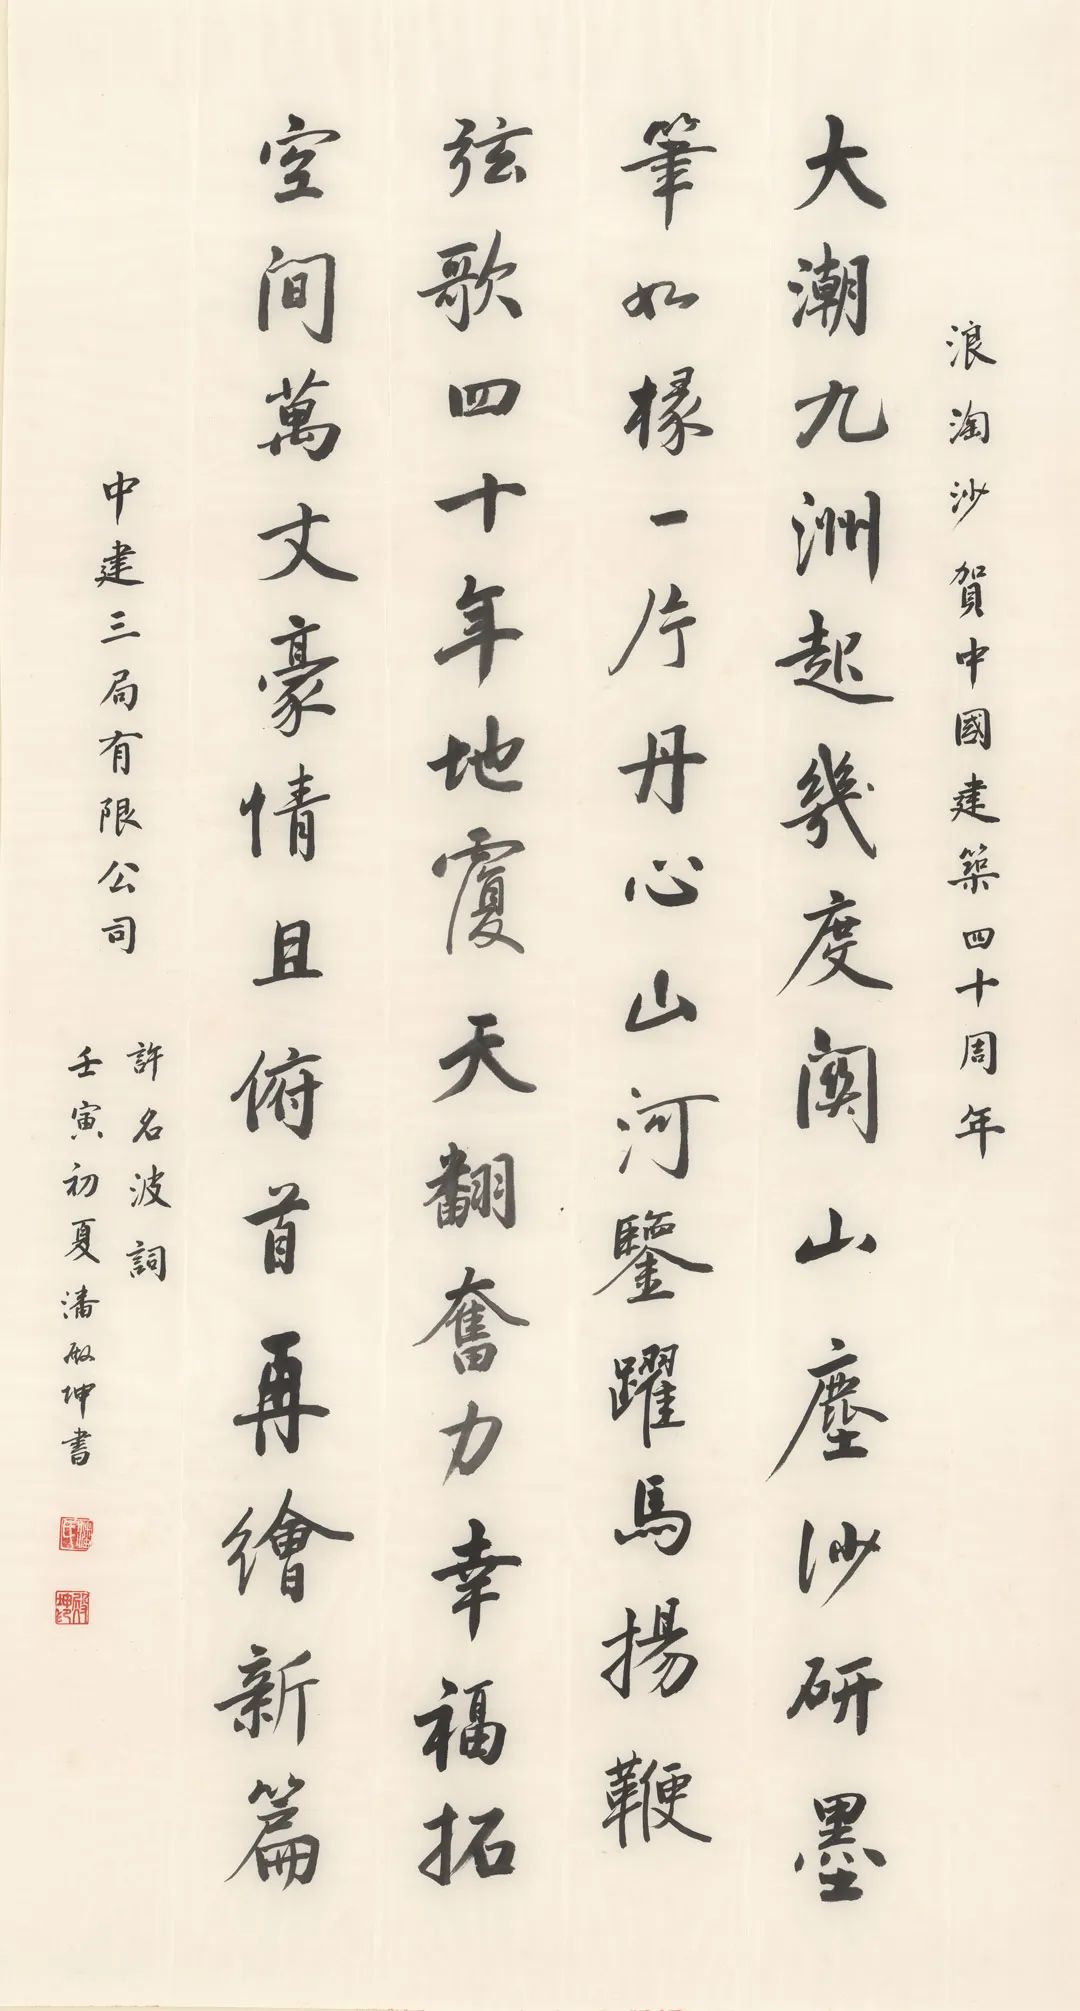 浪淘沙賀中國建築四十周年
大潮九洲起幾度關山塵沙研墨
筆如椽一片丹心山河鑒躍馬揚鞭
弦歌四十年地覆天翻奮力幸福拓
空間萬丈豪情且俯首再繪新篇
中建三局有限公司
許名波詞
壬寅初夏潘殷坤書